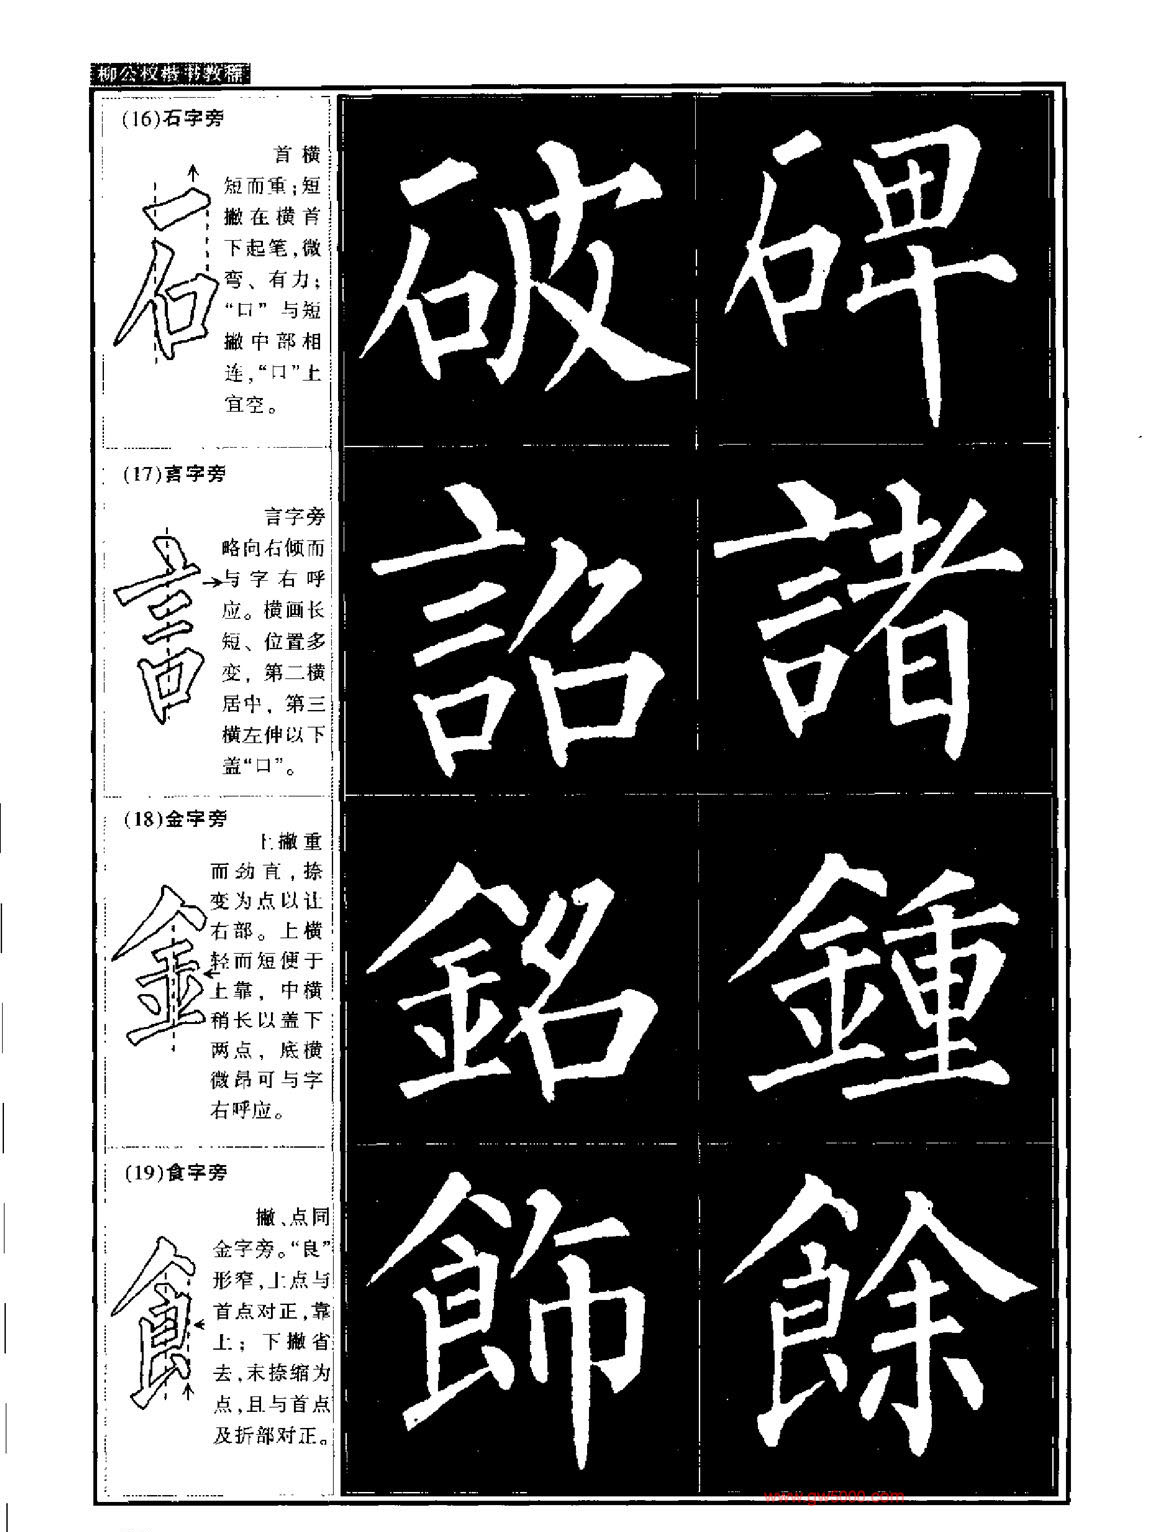 柳公权楷书教程
(16)石字旁
首横
短而重;短
撇在横首
下起笔,微
弯、有力;
“口”与短
撇中部相
连,“口”上
宜空。
石
破 碑
(17)言字旁
言字旁
略向右倾而
与字右呼
应。横画长
短、位置多
变，第二横
居中，第三
横左伸以下
盖“口”。
言
詔 諸
(18)金字旁
上撇重
而劲直,捺
变为点以让
右部。上横
轻而短便于
上靠，中横
稍长以盖下
两点，底横
微昂可与字
右呼应。
金
銘 鍾
(19)食字旁
撇、点同
金字旁。“良”
形窄,上点与
首点对正,靠
上；下撇省
去,末捺缩为
点,且与首点
及折部对正。
食
飾 餘
www.gw5000.com